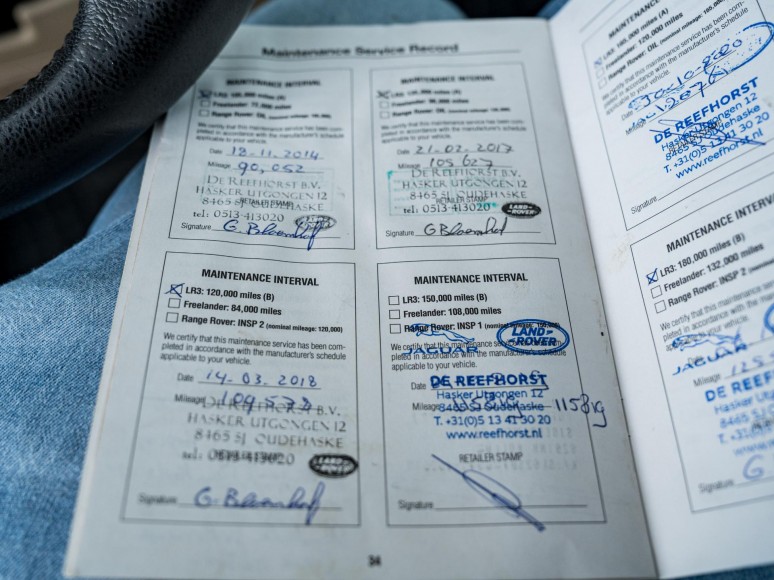 Maintenance Service Record
MAINTENANCE INTERVAL
LR3: 105,000 miles (A)
Freelander: 72,000 miles
Range Rover: OIL
We certify that this maintenance service has been com-
pleted in accordance with the manufacturer's schedule
applicable to your vehicle.
Date 18.11.2014
Mileage 90,052
DE REEFHORST B.V.
HASKER UTGONGEN 12
8465 SJ OUDEHASKE
tel: 0513-413020
LAND-ROVER
Signature G. Bloemhof
MAINTENANCE INTERVAL
LR3: 135,000 miles (A)
Freelander: 96,000 miles
Range Rover: OIL
We certify that this maintenance service has been com-
pleted in accordance with the manufacturer's schedule
applicable to your vehicle.
Date 21-02-2017
Mileage 105 627
DE REEFHORST B.V.
HASKER UTGONGEN 12
RETAILER STAMP
8465 SJ OUDEHASKE
tel: 0513-413020
LAND-ROVER
Signature G Bloemhof
MAINTENANCE INTERVAL
LR3: 120,000 miles (B)
Freelander: 84,000 miles
Range Rover: INSP 2 (nominal mileage: 120,000)
We certify that this maintenance service has been com-
pleted in accordance with the manufacturer's schedule
applicable to your vehicle.
Date 14.03.2018
Mileage
DE REEFHORST B.V.
HASKER UTGONGEN 12
8465 SJ OUDEHASKE
tel: 0513-413020
LAND-ROVER
Signature G. Bloemhof
MAINTENANCE INTERVAL
LR3: 150,000 miles (B)
Freelander: 108,000 miles
Range Rover: INSP 1
We certify that this maintenance
JAGUAR
LAND-ROVER
pleted in accordance with the manufacturer's schedule
applicable to your vehicle.
Date
DE REEFHORST
Hasker Utgongen 12
Mileage
8465 SJ Oudehaske
T. +31(0)5 13 41 30 20
www.reefhorst.nl
RETAILER STAMP
Signature
34
MAINTENANCE
miles (A)
Freelander: 120,000 miles
Range Rover: OIL
We certify that this maintenance service has been com-
pleted in accordance with the manufacturer's schedule
applicable to your vehicle.
Mileage
DE REEFHORST
Hasker Utgongen 12
8465 SJ Oudehaske
T. +31(0)5 13 41 30 20
www.reefhorst.nl
Signature
MAINTENANCE INTERV
LR3: 180,000 miles (B)
Freelander: 132,000 miles
Range Rover: INSP 2
We certify that this maintenance
JAGUAR
Mileage
DE REEF
Hasker
Signature G.